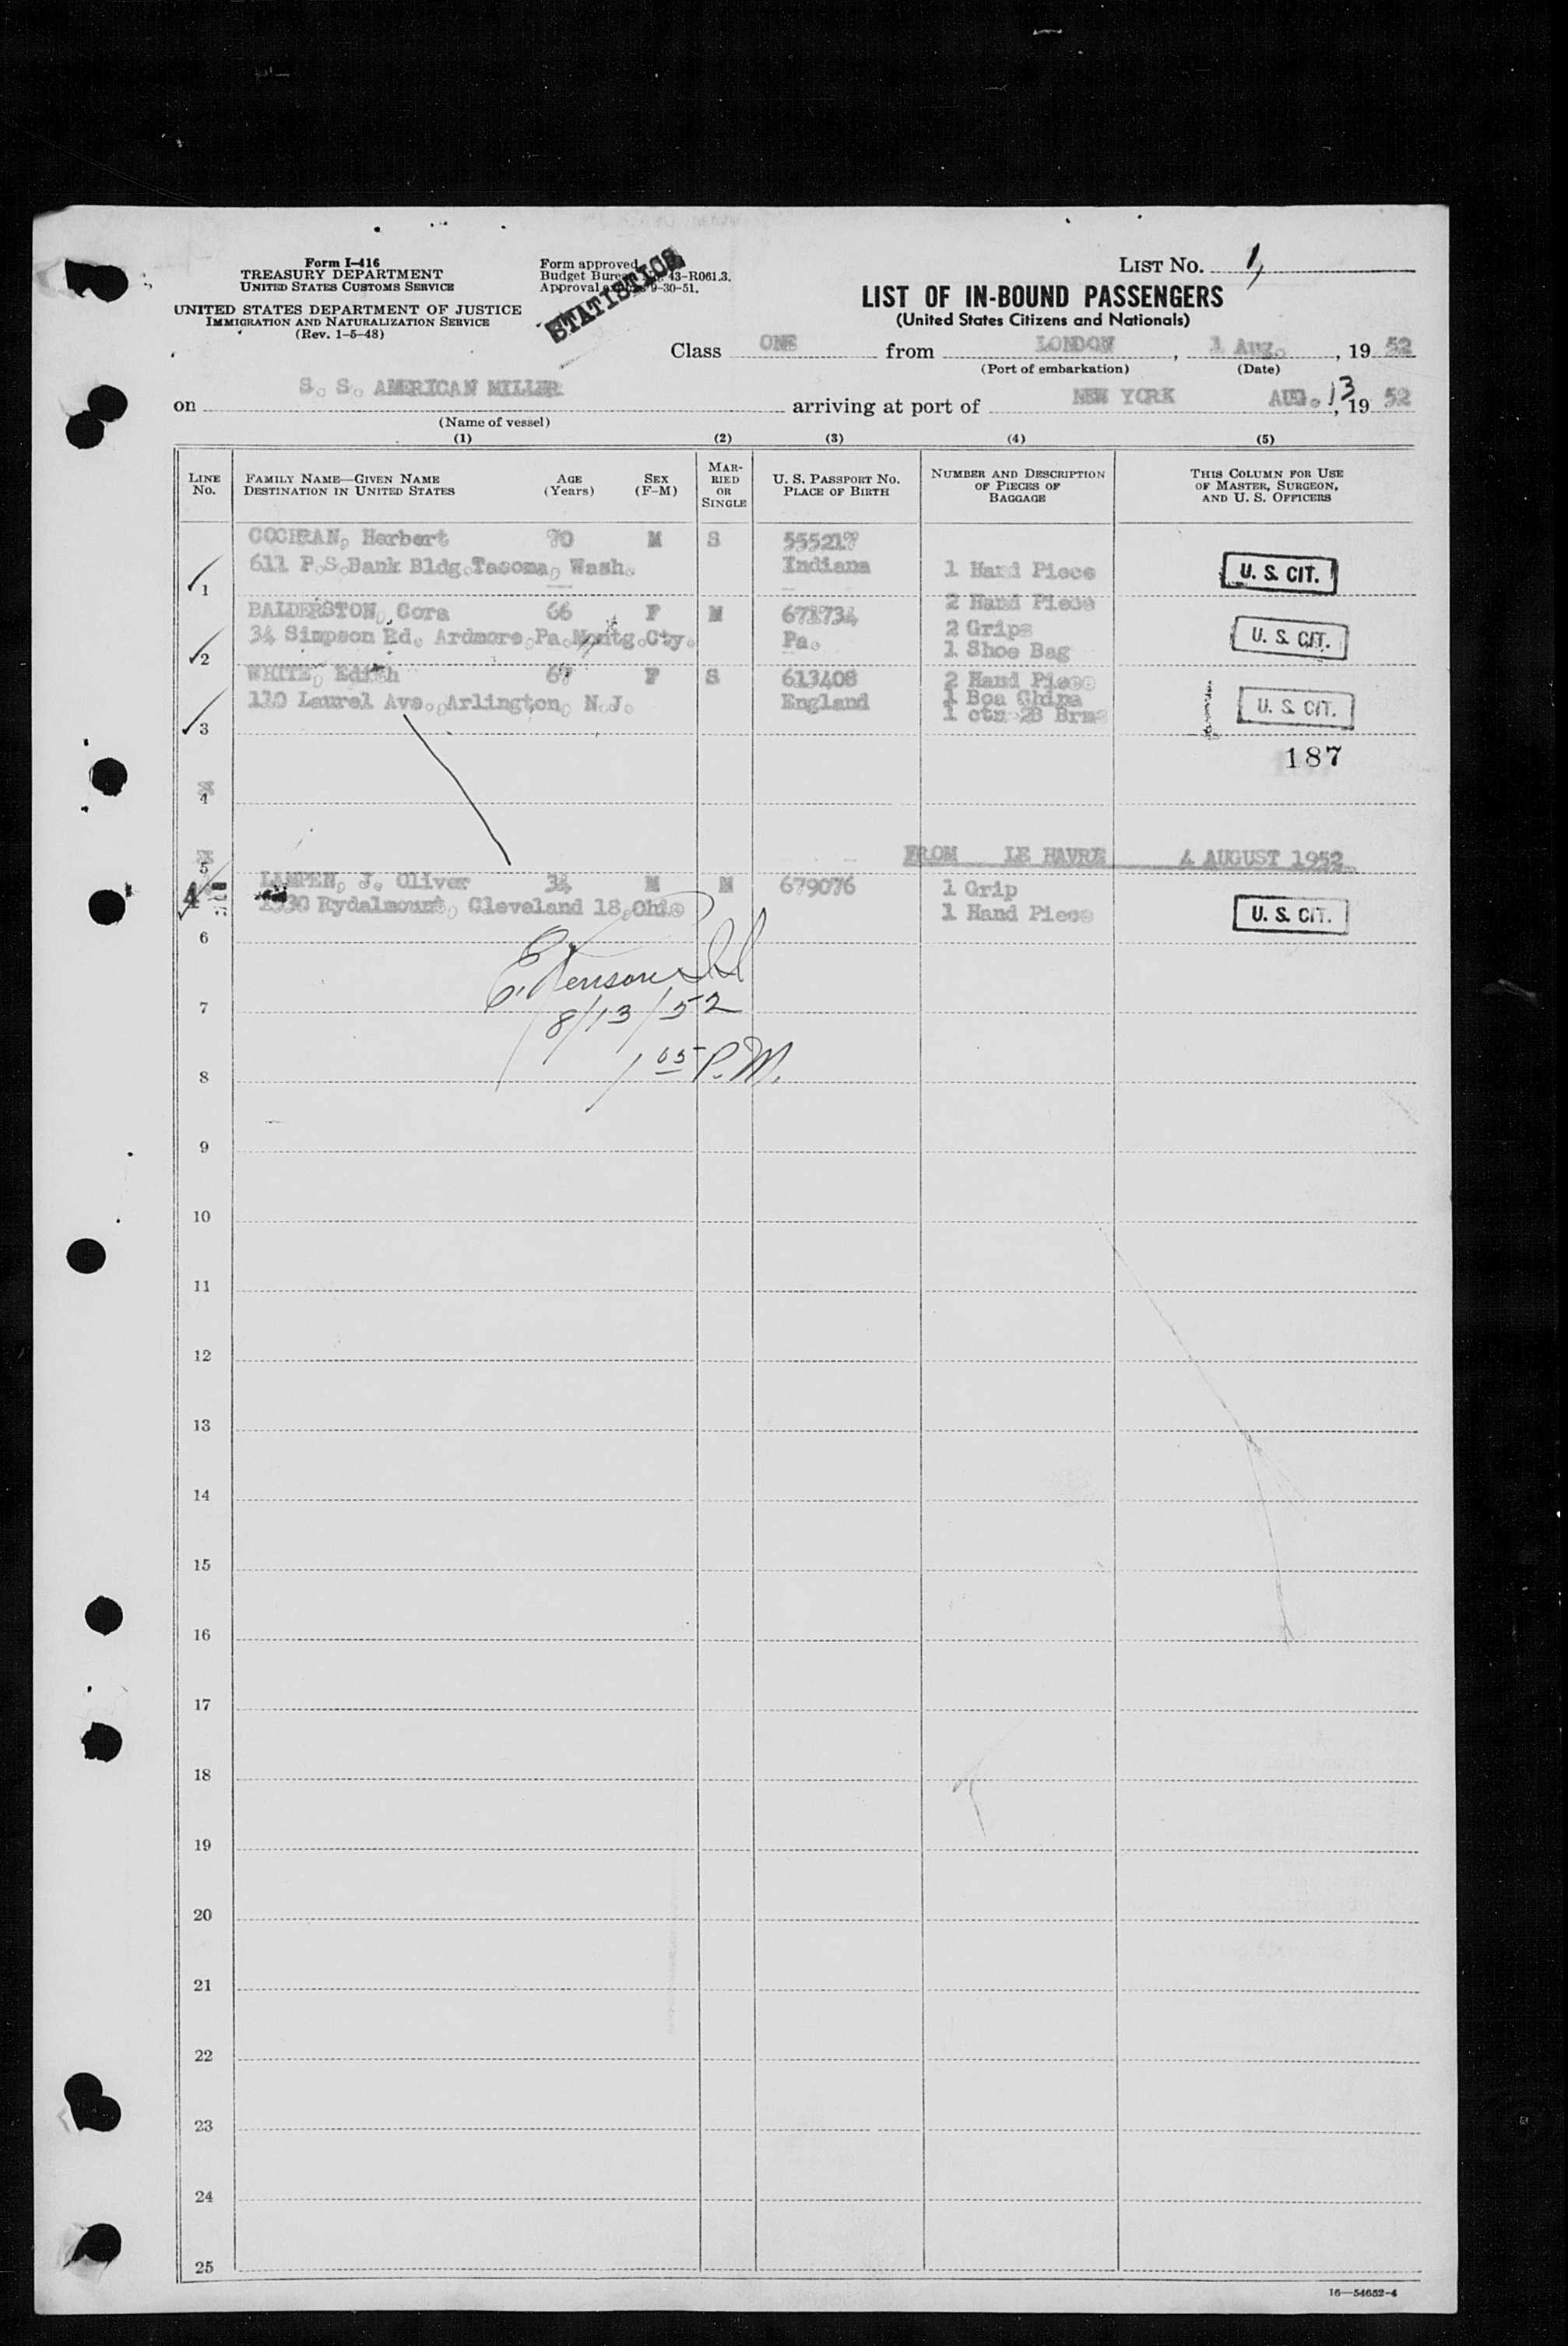 Form I-416
TREASURY DEPARTMENT
UNITED STATES CUSTOMS SERVICE
UNITED STATES DEPARTMENT OF JUSTICE
IMMIGRATION AND NATURALIZATION SERVICE
(Rev. 1-5-48)
Form approved.
Budget Bureau No. 43-R061.3.
Approval expires 9-30-51.
STATISTICS
LIST NO. 1,
LIST OF IN-BOUND PASSENGERS
(United States Citizens and Nationals)
Class ONE from LONDON, 1 Aug., 1952
(Port of embarkation) (Date)
on S. S. AMERICAN MILLER arriving at port of NEW YORK AUG. 13, 1952
(Name of vessel)
(1) (2) (3) (4) (5)
LINE NO.
FAMILY NAME—GIVEN NAME
DESTINATION IN UNITED STATES
AGE (Years)
SEX (F-M)
MARRIED OR SINGLE
U. S. PASSPORT NO.
PLACE OF BIRTH
NUMBER AND DESCRIPTION OF PIECES OF BAGGAGE
THIS COLUMN FOR USE OF MASTER, SURGEON, AND U. S. OFFICERS
COCHRAN, Herbert 70 M S 555217
1 611 P.S.Bank Bldg.Tacoma, Wash. Indiana 1 Hand Piece U. S. CIT.
2 Hand Piece
BALDERSTON, Cora 66 F M 671734 2 Grips
2 34 Simpson Rd. Ardmore,Pa.Montg.Cty. Pa. 1 Shoe Bag U. S. CIT.
WHITE, Edith 67 F S 613408 2 Hand Piece
3 110 Laurel Ave.,Arlington, N.J. England 1 Box China U. S. CIT.
1 ctn 2B Brms
187
4
5 FROM LE HAVRE 4 AUGUST 1952.
4 LAMPEN, J. Oliver 34 M M 679076 1 Grip
Rydalmount, Cleveland 18,Ohio 1 Hand Piece U. S. CIT.
6
7 8/13/52
8 1 05 P.M.
9
10
11
12
13
14
15
16
17
18
19
20
21
22
23
24
25
16—54652-4